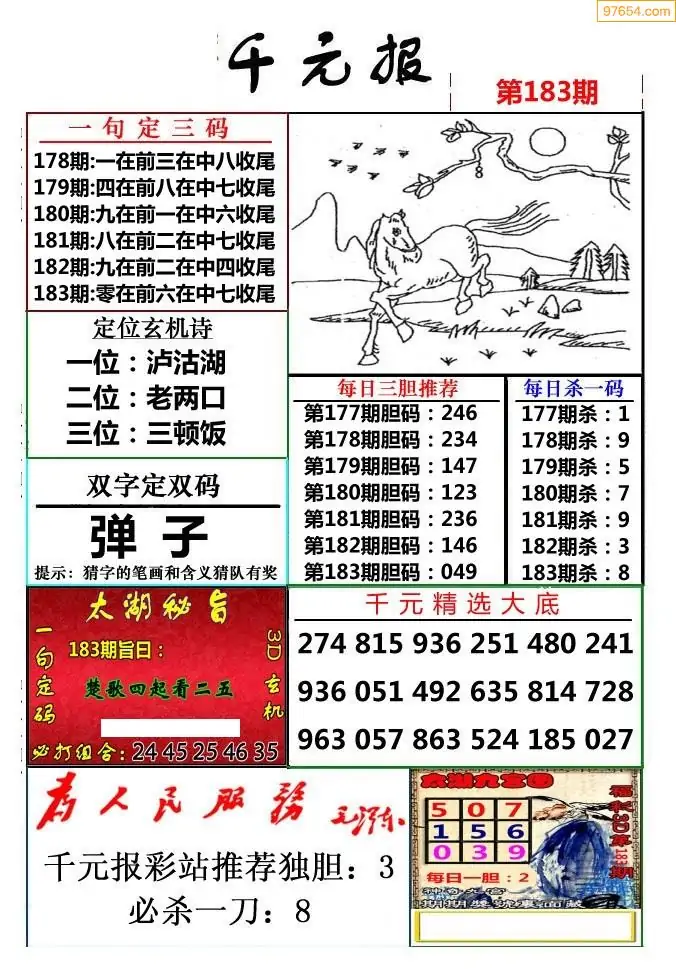 97654.com
千元报
第183期
一句定三码
178期:一在前三在中八收尾
179期:四在前八在中七收尾
180期:九在前一在中六收尾
181期:八在前二在中七收尾
182期:九在前二在中四收尾
183期:零在前六在中七收尾
定位玄机诗
一位：泸沽湖
二位：老两口
三位：三顿饭
双字定双码
弹子
提示：猜字的笔画和含义猜队有奖
8
每日三胆推荐
第177期胆码：246
第178期胆码：234
第179期胆码：147
第180期胆码：123
第181期胆码：236
第182期胆码：146
第183期胆码：049
每日杀一码
177期杀：1
178期杀：9
179期杀：5
180期杀：7
181期杀：9
182期杀：3
183期杀：8
太湖秘旨
一句定码
183期旨曰：
楚歌四起看二五
3D玄机
必打组合：24 45 25 46 35
千元精选大底
274 815 936 251 480 241
936 051 492 635 814 728
963 057 863 524 185 027
为人民服务
毛泽东
千元报彩站推荐独胆：3
必杀一刀：8
太湖九宫图
5 0 7
1 5 6
0 3 9
每日一胆：2
福彩3D第183期
期期奖号里面藏